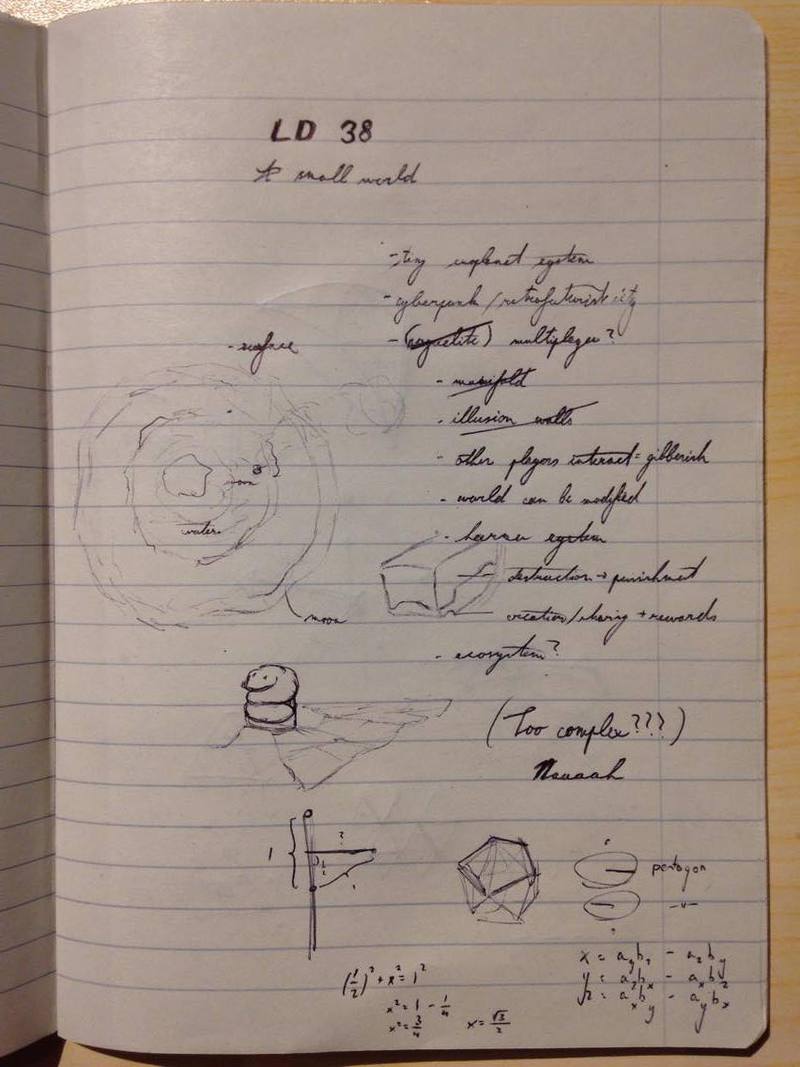 LD 38
A small world
- tiny system
- cyberpunk / retrofuturist city
- surface
- (roguelite) multiplayer?
- manifold
- illusion walls
- other players interact = gibberish
- world can be modified
- karma system
destruction → punishment
creation/sharing → rewards
- ecosystem?
water
moon
(Too complex???)
Naaaah
1
?
1/2
pentagon
-"-
(1/2)² + x² = 1²
x² = 1 - 1/4
x² = 3/4
x = √3/2
x = a_y b_z - a_z b_y
y = a_z b_x - a_x b_z
z = a_x b_y - a_y b_x